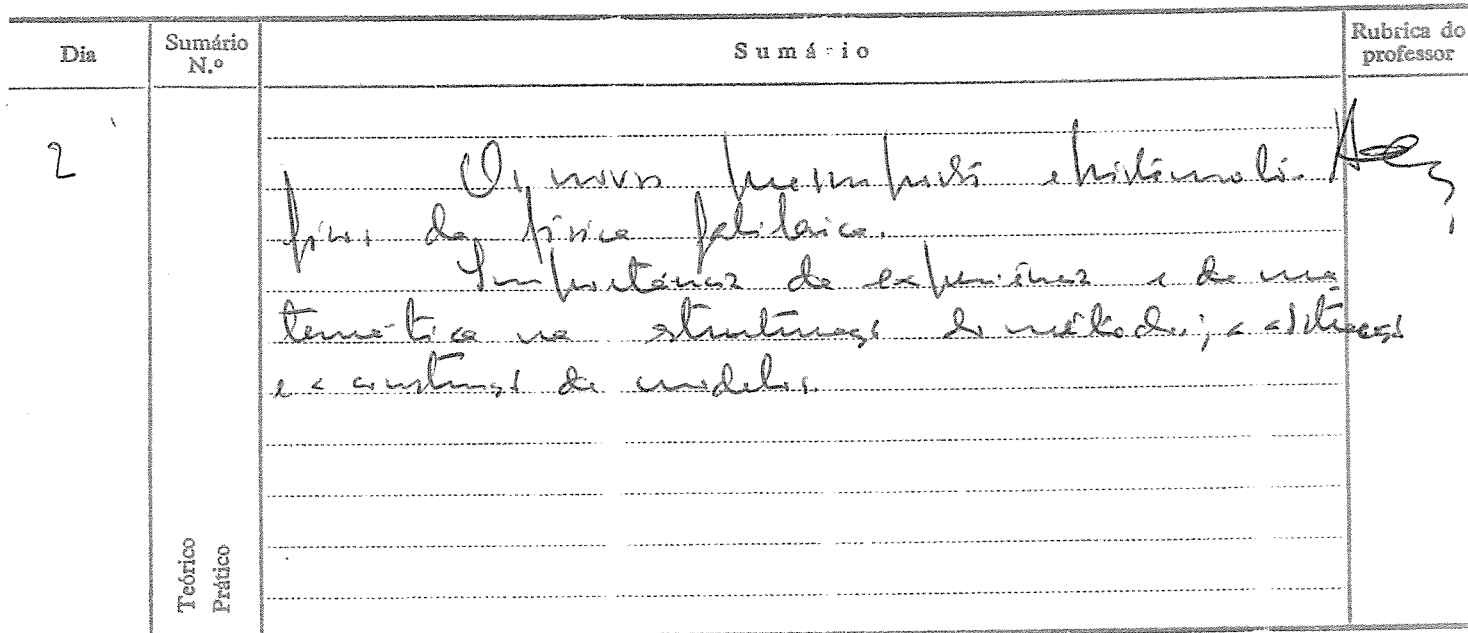 Dia
Sumário N.º
Sumário
Rubrica do professor
2
Os novos pressupostos epistemoló-
gicos da física galilaica.
Importância da experiência e da ma
temática na estruturação do método; a abstração
e a construção de modelos.
Teórico
Prático